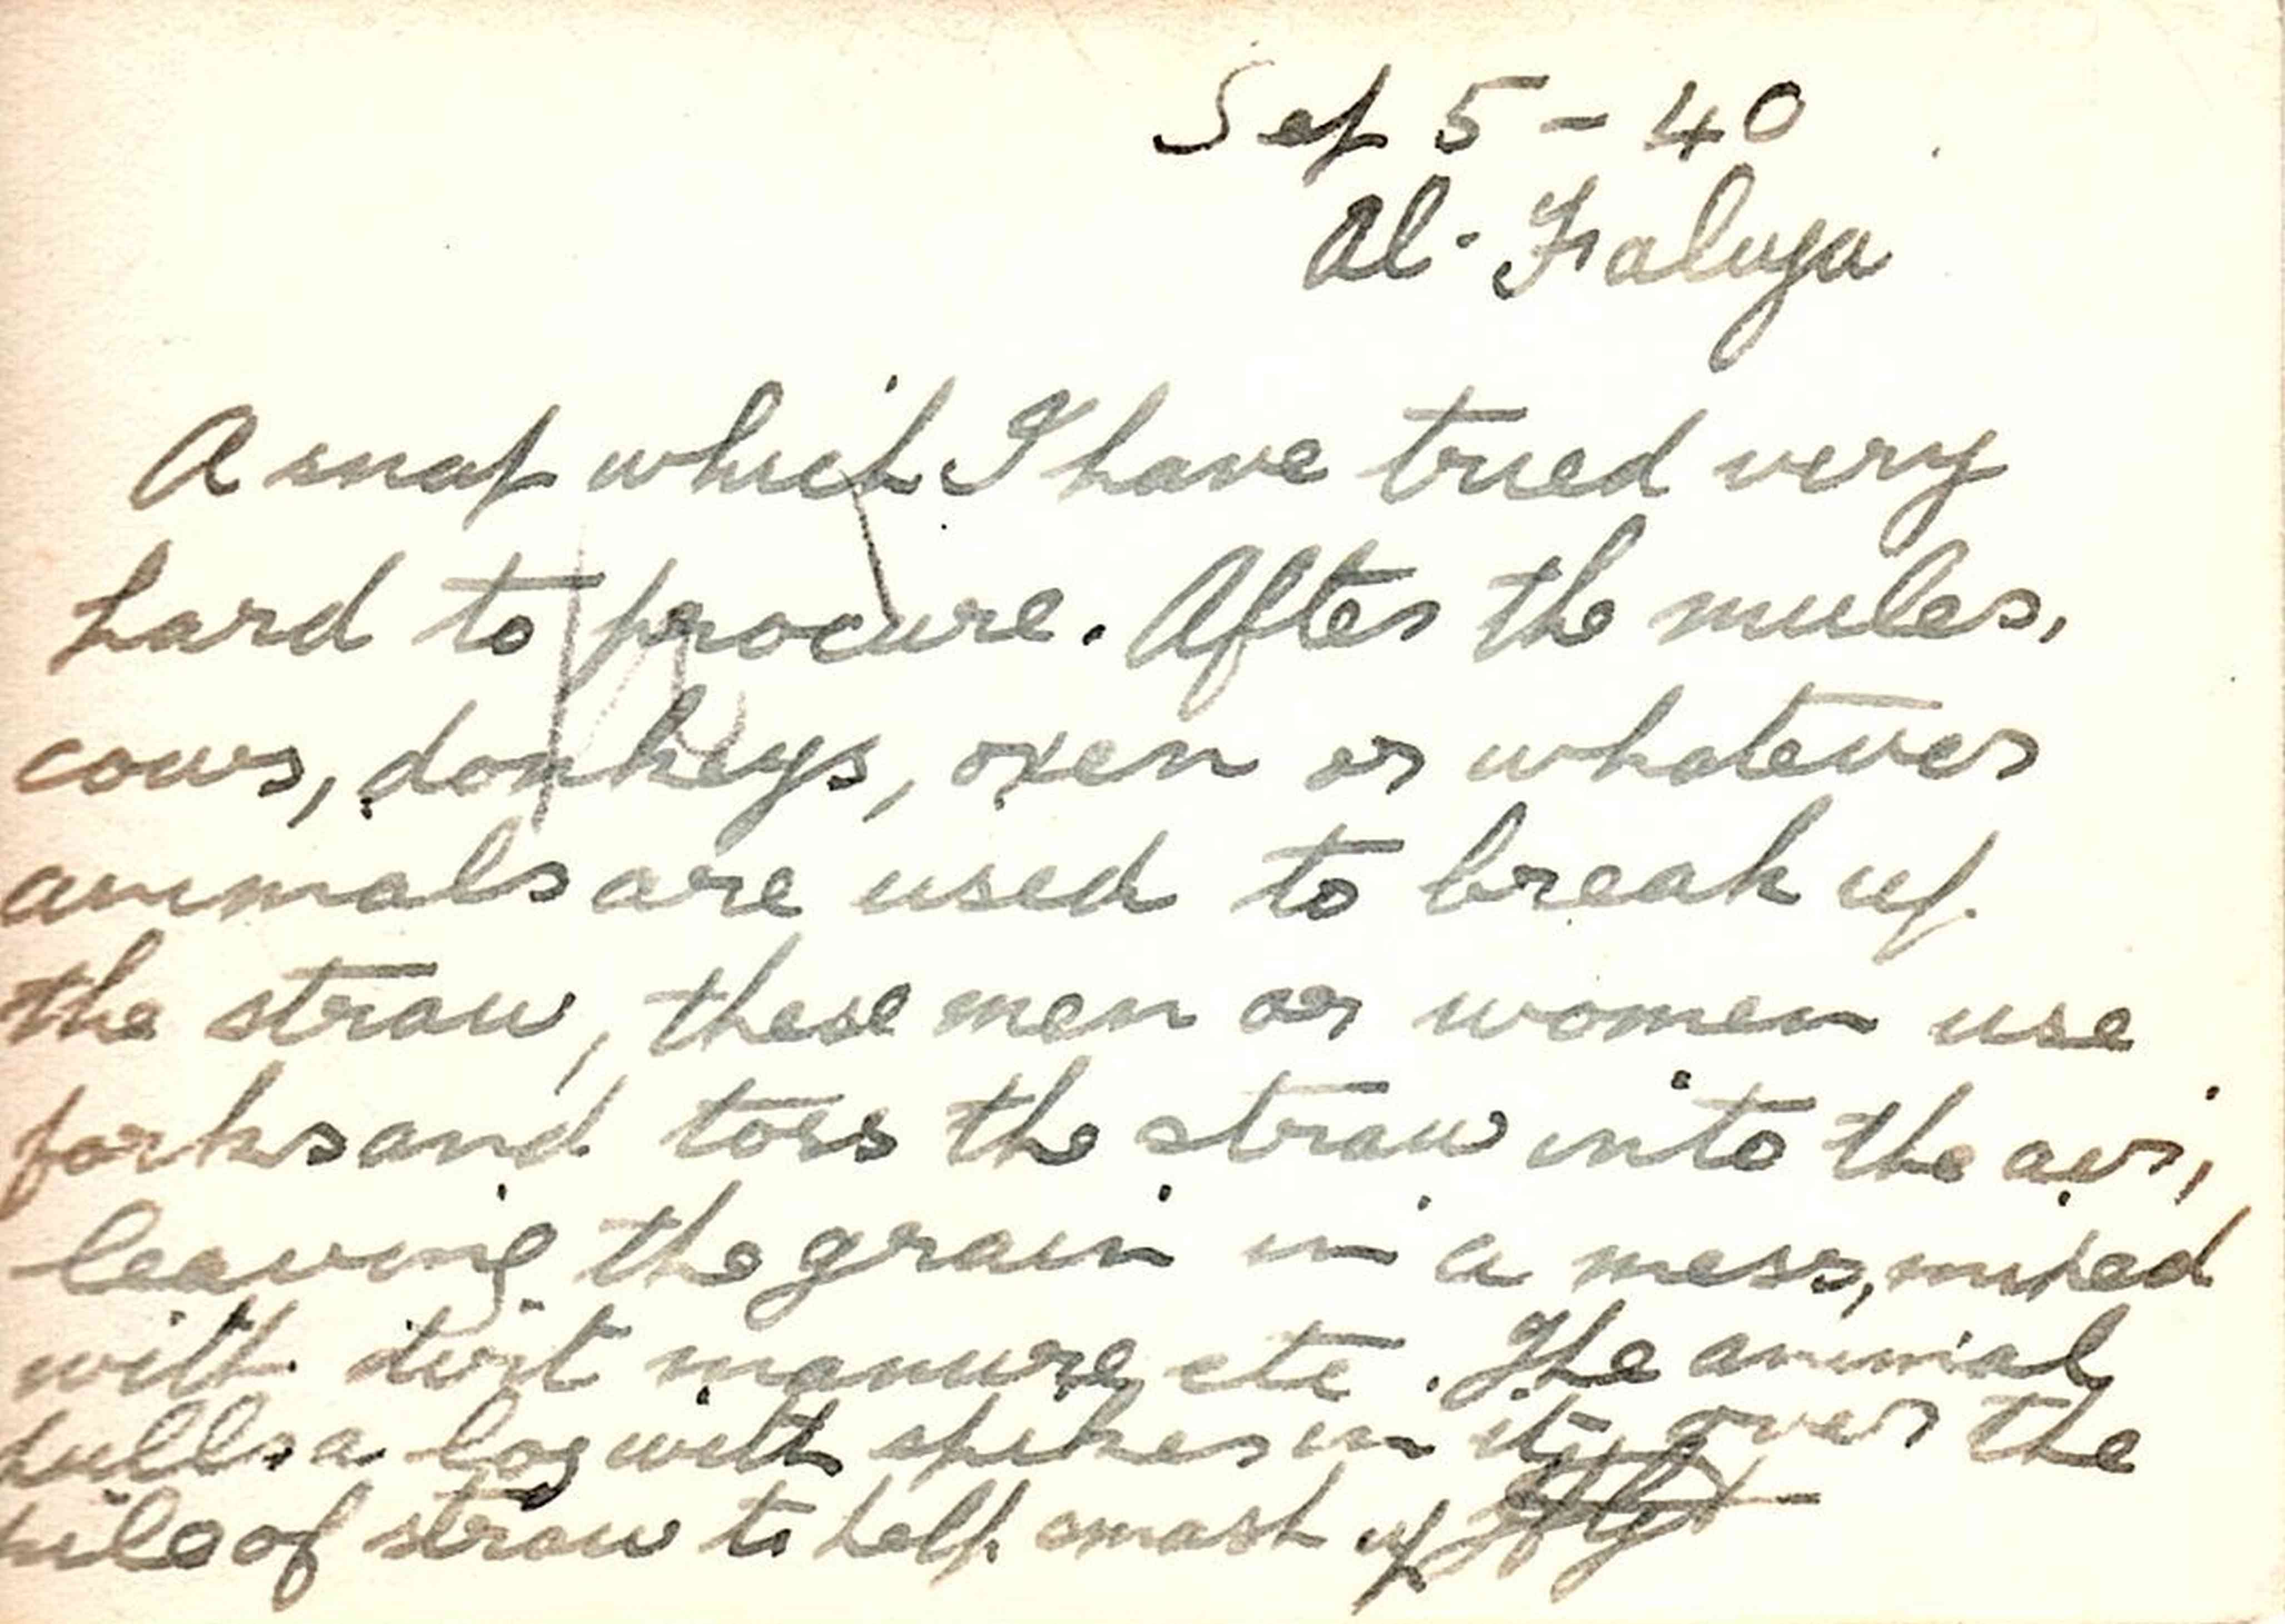 Sep 5 - 40
Al-Faluja
A snap which I have tried very
hard to procure. After the mules,
cows, donkeys, oxen or whatever
animals are used to break up
the straw, these men or women use
forks and toss the straw into the air,
leaving the grain in a mess, mixed
with dirt manure etc. The animal
pulls a log with spikes in it, over the
pile of straw to help smash up